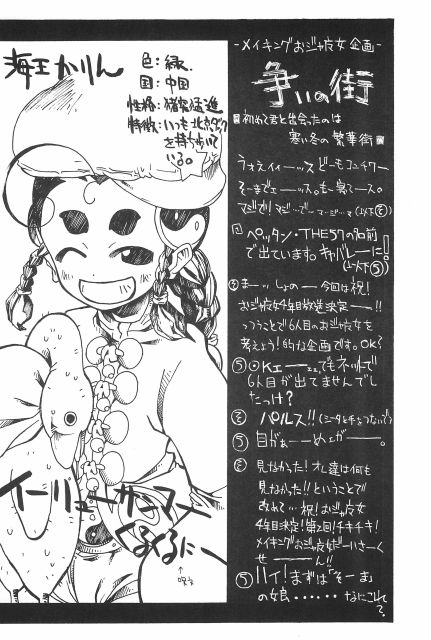 海王かりん
色：緑
国：中国
性格：猪突猛進
特徴：いつも北京ダック
を持ち歩いて
いる。
イーリューサンマー
くるくるに〜
↑
呪文
-メイキングおジャ魔女企画-
争いの街
■初めて君と出会ったのは
寒い冬の繁華街■
うぉえィィーッス どーもコンチワー
そーまでェーッス。も〜寒ぃース。
マジで!! マジーで… マ…ジ…マ(以下そ)
ペッタン・THE57の名前
で出ています。キャバレーに!
(以下5)
まーッ しょの— 今回は祝!
おジャ魔女4年目放送決定ー!!
っつうことで6人目のおジャ魔女を
考えよう!的な企画です。OK?
⑤OKェー…ェェ、でもネットで
6人目が出てませんでし
たっけ?
そ バルス!!(シータと手をつないで)
⑤目がぁーーめェがーー。
そ 見なかった!オレ達は何も
見なかった!!ということで
あれて… 祝!おジャ魔女
4年目決定!第2回!チキチキ!
メイキングおジャ魔女だーいさーく
せーーん!!
⑤ハイ!まずは「そーま」
の娘……なにこれ
?